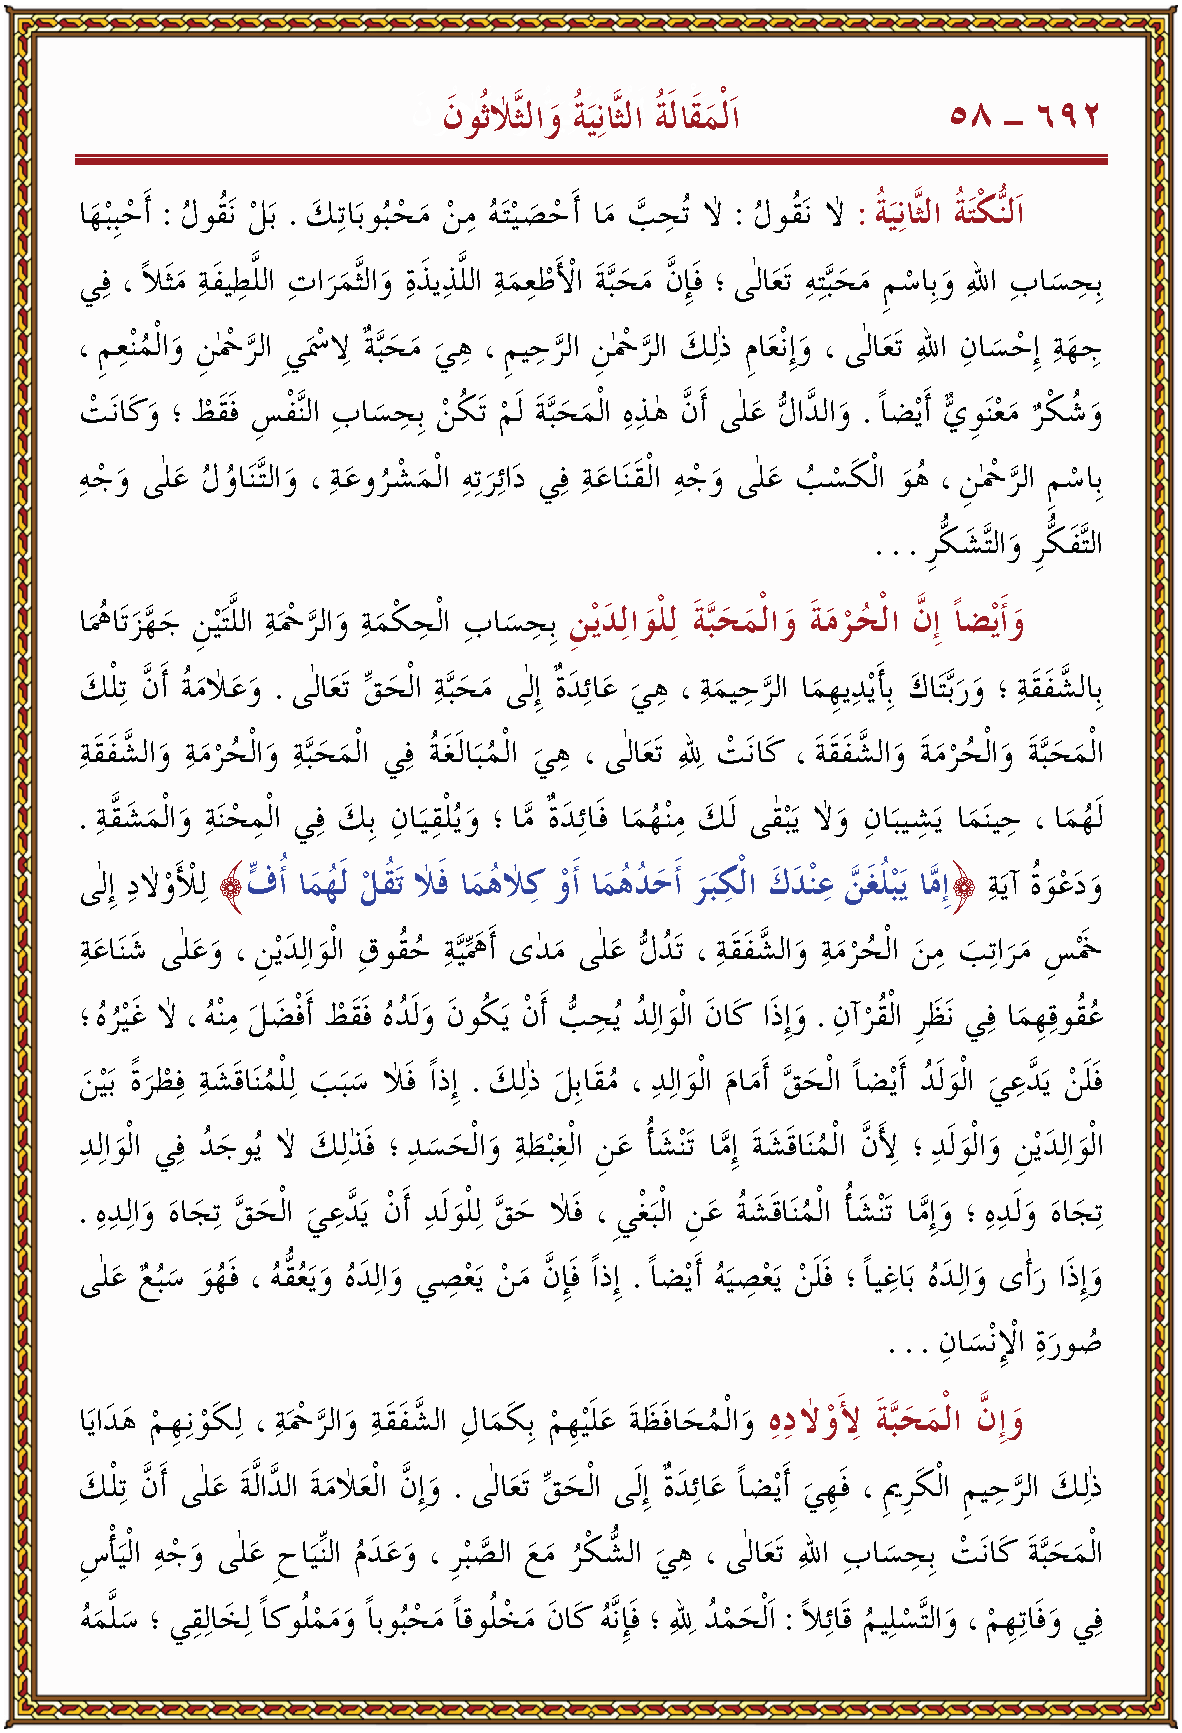 ٦٩٢ ــ ٥٨ اَلْمَقَالَةُ الثَّانِيَةُ وَالثَّلَاثُونَ
اَلنُّكْتَةُ الثَّانِيَةُ : لاٰ نَقُولُ : لاٰ تُحِبَّ مَا أَحْصَيْتَهُ مِنْ مَحْبُوبَاتِكَ . بَلْ نَقُولُ : أَحْبِبْهَا
بِحِسَابِ اللهِ وَبِاسْمِ مَحَبَّتِهِ تَعَالٰى ؛ فَإِنَّ مَحَبَّةَ الْأَطْعِمَةِ اللَّذِيذَةِ وَالثَّمَرَاتِ اللَّطِيفَةِ مَثَلاً ، فِي
جِهَةِ إِحْسَانِ اللهِ تَعَالٰى ، وَإِنْعَامِ ذٰلِكَ الرَّحْمٰنِ الرَّحِيمِ ، هِيَ مَحَبَّةٌ لِاسْمَيِ الرَّحْمٰنِ وَالْمُنْعِمِ ،
وَشُكْرٌ مَعْنَوِيٌّ أَيْضاً . وَالدَّالُّ عَلٰى أَنَّ هٰذِهِ الْمَحَبَّةَ لَمْ تَكُنْ بِحِسَابِ النَّفْسِ فَقَطْ ؛ وَكَانَتْ
بِاسْمِ الرَّحْمٰنِ ، هُوَ الْكَسْبُ عَلٰى وَجْهِ الْقَنَاعَةِ فِي دَائِرَتِهِ الْمَشْرُوعَةِ ، وَالتَّنَاوُلُ عَلٰى وَجْهِ
التَّفَكُّرِ وَالتَّشَكُّرِ . . .
وَأَيْضاً إِنَّ الْحُرْمَةَ وَالْمَحَبَّةَ لِلْوَالِدَيْنِ بِحِسَابِ الْحِكْمَةِ وَالرَّحْمَةِ اللَّتَيْنِ جَهَّزَتَاهُمَا
بِالشَّفَقَةِ ؛ وَرَبَّتَاكَ بِأَيْدِيهِمَا الرَّحِيمَةِ ، هِيَ عَائِدَةٌ إِلٰى مَحَبَّةِ الْحَقِّ تَعَالٰى . وَعَلاٰمَةُ أَنَّ تِلْكَ
الْمَحَبَّةَ وَالْحُرْمَةَ وَالشَّفَقَةَ ، كَانَتْ لِلهِ تَعَالٰى ، هِيَ الْمُبَالَغَةُ فِي الْمَحَبَّةِ وَالْحُرْمَةِ وَالشَّفَقَةِ
لَهُمَا ، حِينَمَا يَشِيبَانِ وَلاٰ يَبْقٰى لَكَ مِنْهُمَا فَائِدَةٌ مَّا ؛ وَيُلْقِيَانِ بِكَ فِي الْمِحْنَةِ وَالْمَشَقَّةِ .
وَدَعْوَةُ آيَةِ ﴿إِمَّا يَبْلُغَنَّ عِنْدَكَ الْكِبَرَ أَحَدُهُمَا أَوْ كِلاٰهُمَا فَلاٰ تَقُلْ لَهُمَا أُفٍّ﴾ لِلْأَوْلاٰدِ إِلٰى
خَمْسِ مَرَاتِبَ مِنَ الْحُرْمَةِ وَالشَّفَقَةِ ، تَدُلُّ عَلٰى مَدٰى أَهَمِّيَّةِ حُقُوقِ الْوَالِدَيْنِ ، وَعَلٰى شَنَاعَةِ
عُقُوقِهِمَا فِي نَظَرِ الْقُرْآنِ . وَإِذَا كَانَ الْوَالِدُ يُحِبُّ أَنْ يَكُونَ وَلَدُهُ فَقَطْ أَفْضَلَ مِنْهُ ، لاٰ غَيْرُهُ ؛
فَلَنْ يَدَّعِيَ الْوَلَدُ أَيْضاً الْحَقَّ أَمَامَ الْوَالِدِ ، مُقَابِلَ ذٰلِكَ . إِذاً فَلاٰ سَبَبَ لِلْمُنَاقَشَةِ فِطْرَةً بَيْنَ
الْوَالِدَيْنِ وَالْوَلَدِ ؛ لِأَنَّ الْمُنَاقَشَةَ إِمَّا تَنْشَأُ عَنِ الْغِبْطَةِ وَالْحَسَدِ ؛ فَذٰلِكَ لاٰ يُوجَدُ فِي الْوَالِدِ
تِجَاهَ وَلَدِهِ ؛ وَإِمَّا تَنْشَأُ الْمُنَاقَشَةُ عَنِ الْبَغْيِ ، فَلاٰ حَقَّ لِلْوَلَدِ أَنْ يَدَّعِيَ الْحَقَّ تِجَاهَ وَالِدِهِ .
وَإِذَا رَأٰى وَالِدَهُ بَاغِياً ؛ فَلَنْ يَعْصِيَهُ أَيْضاً . إِذاً فَإِنَّ مَنْ يَعْصِي وَالِدَهُ وَيَعُقُّهُ ، فَهُوَ سَبُعٌ عَلٰى
صُورَةِ الْإِنْسَانِ . . .
وَإِنَّ الْمَحَبَّةَ لِأَوْلاٰدِهِ وَالْمُحَافَظَةَ عَلَيْهِمْ بِكَمَالِ الشَّفَقَةِ وَالرَّحْمَةِ ، لِكَوْنِهِمْ هَدَايَا
ذٰلِكَ الرَّحِيمِ الْكَرِيمِ ، فَهِيَ أَيْضاً عَائِدَةٌ إِلَى الْحَقِّ تَعَالٰى . وَإِنَّ الْعَلاٰمَةَ الدَّالَّةَ عَلٰى أَنَّ تِلْكَ
الْمَحَبَّةَ كَانَتْ بِحِسَابِ اللهِ تَعَالٰى ، هِيَ الشُّكْرُ مَعَ الصَّبْرِ ، وَعَدَمُ النِّيَاحِ عَلٰى وَجْهِ الْيَأْسِ
فِي وَفَاتِهِمْ ، وَالتَّسْلِيمُ قَائِلاً : اَلْحَمْدُ لِلهِ ؛ فَإِنَّهُ كَانَ مَخْلُوقاً مَحْبُوباً وَمَمْلُوكاً لِخَالِقِي ؛ سَلَّمَهُ